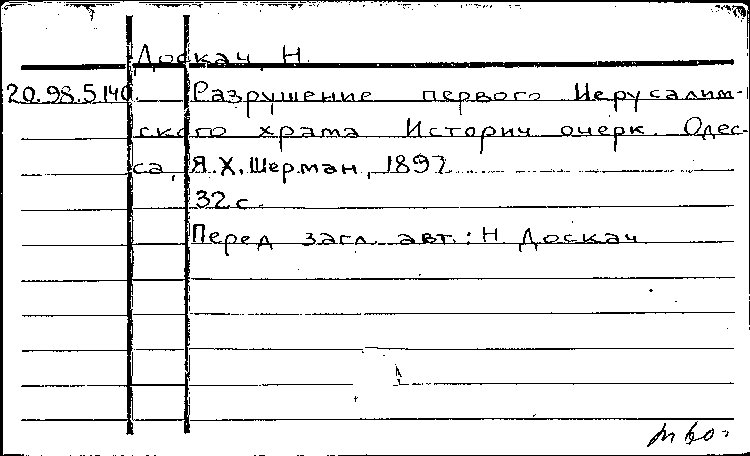 Доскач, Н.
20.98.5.140. Разрушение первого Иерусалим-
ского храма Историч очерк. Одес-
са, Я.Х. Шерман, 1892
32 с.
Перед загл. авт.: Н. Доскач